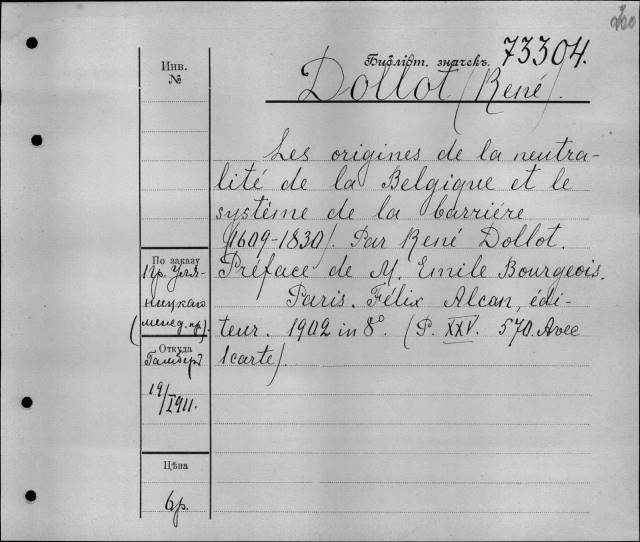 Библіот. значекъ. 73304.
Dollot (René).
Инв.
№
Les origines de la neutra-
lité de la Belgique et le
système de la barrière
(1609-1830). Par René Dollot.
Préface de M. Emile Bourgeois.
Paris. Félix Alcan, édi-
teur. 1902 in 8°. (P. XXV. 570. Avec
1carte).
По заказу
гр. Уля-
ницкаго
Откуда
19/I 1911.
Цѣна
6р.